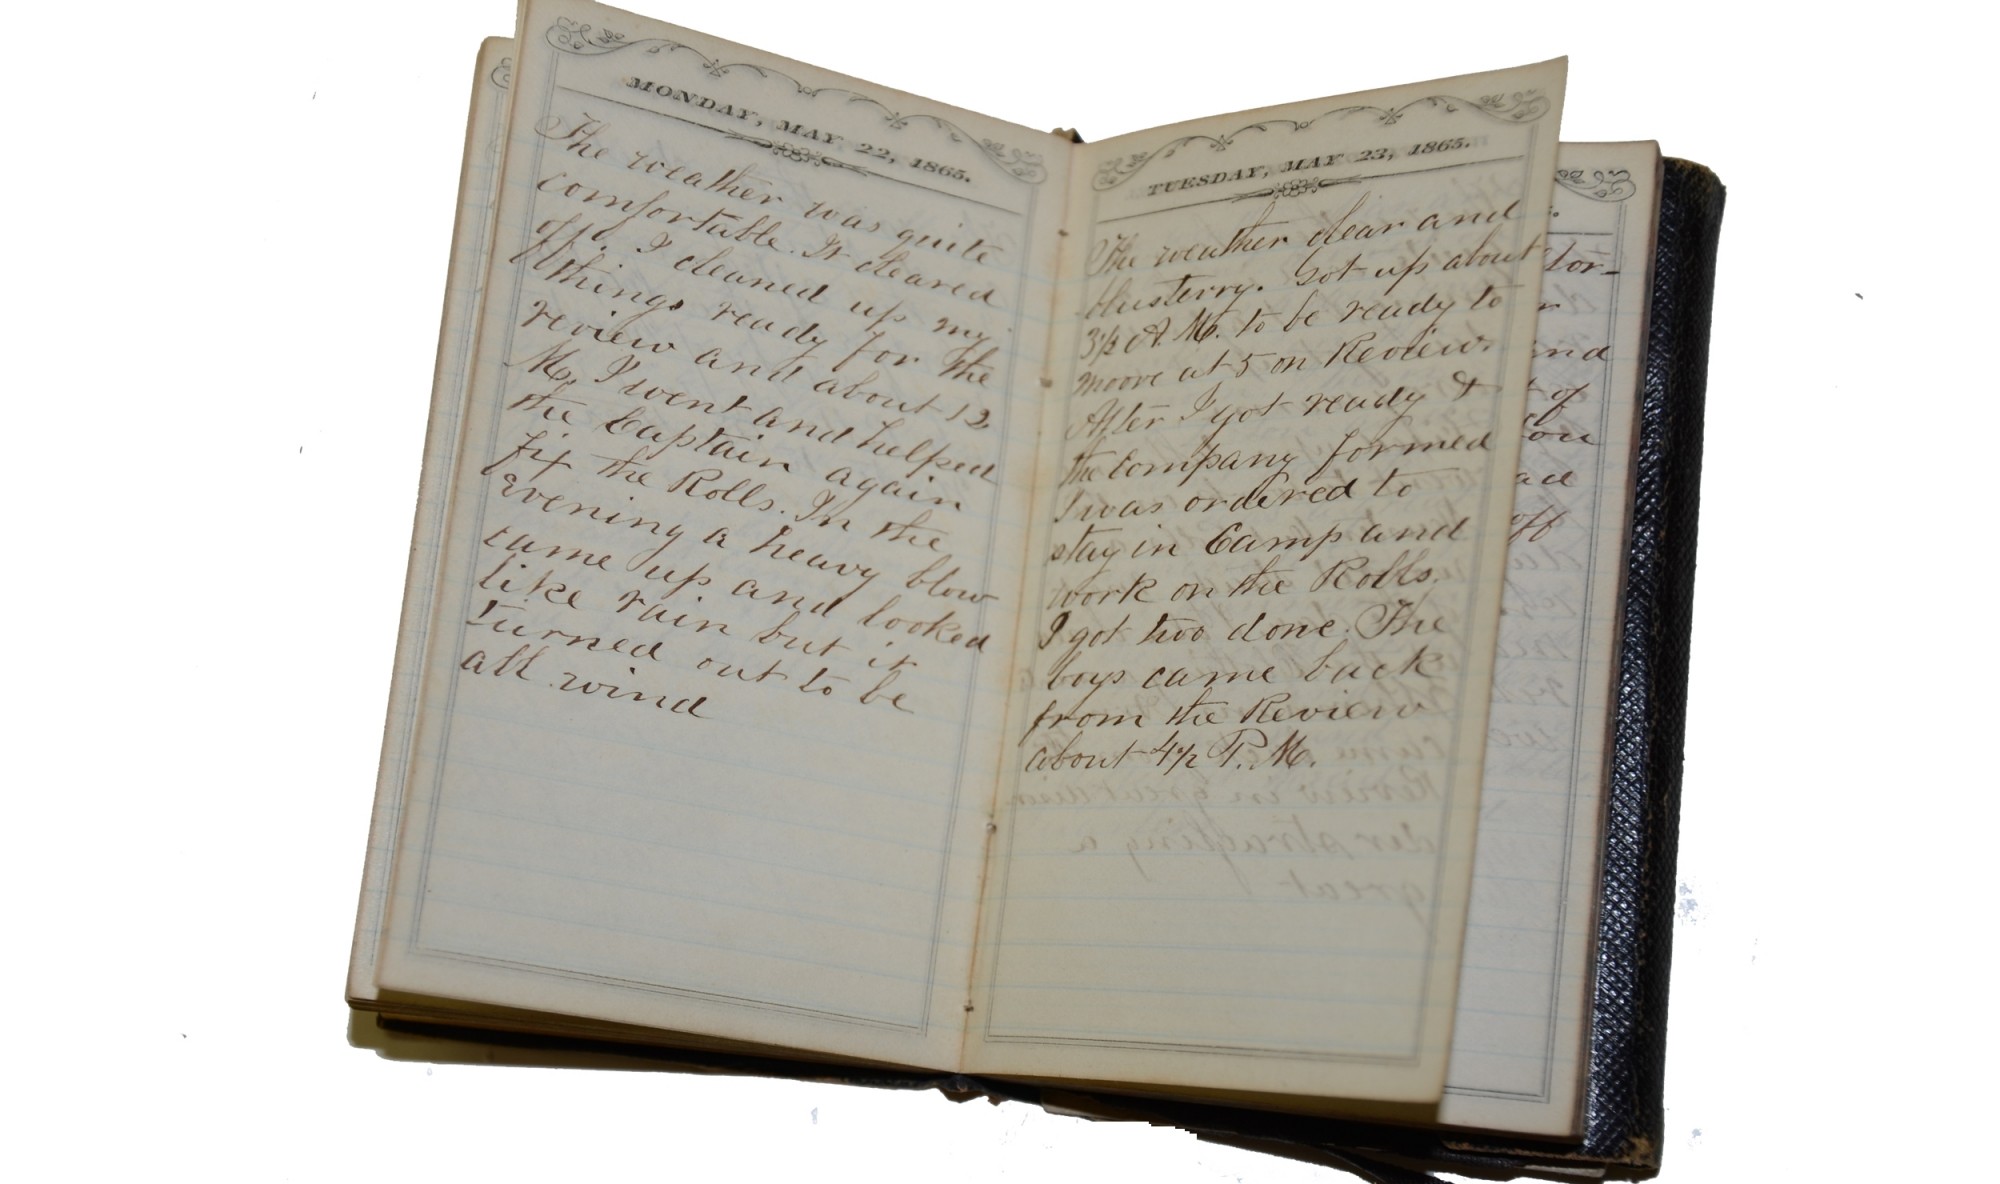 MONDAY, MAY 22, 1865.
The weather was quite
comfortable. It cleared
off. I cleaned up my
things ready for the
review and about 12
M. I went and helped
the Captain again
fix the Rolls. In the
evening a heavy blow
came up and looked
like rain but it
turned out to be
all wind
TUESDAY, MAY 23, 1865.
The weather clear and
blusterry. Got up about
3½ A. M. to be ready to
moove at 5 on Review.
After I got ready &
the Company formed
I was ordered to
stay in Camp and
work on the Rolls.
I got two done. The
boys came back
from the Review
about 4½ P. M.
of
off